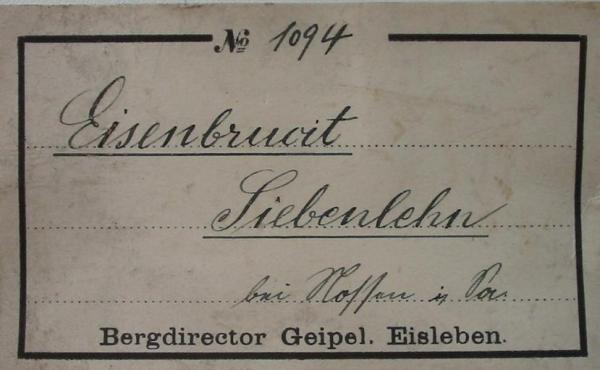 № 1094
Eisenbrucit
Siebenlehn
bei Nossen i/ Sa.
Bergdirector Geipel. Eisleben.